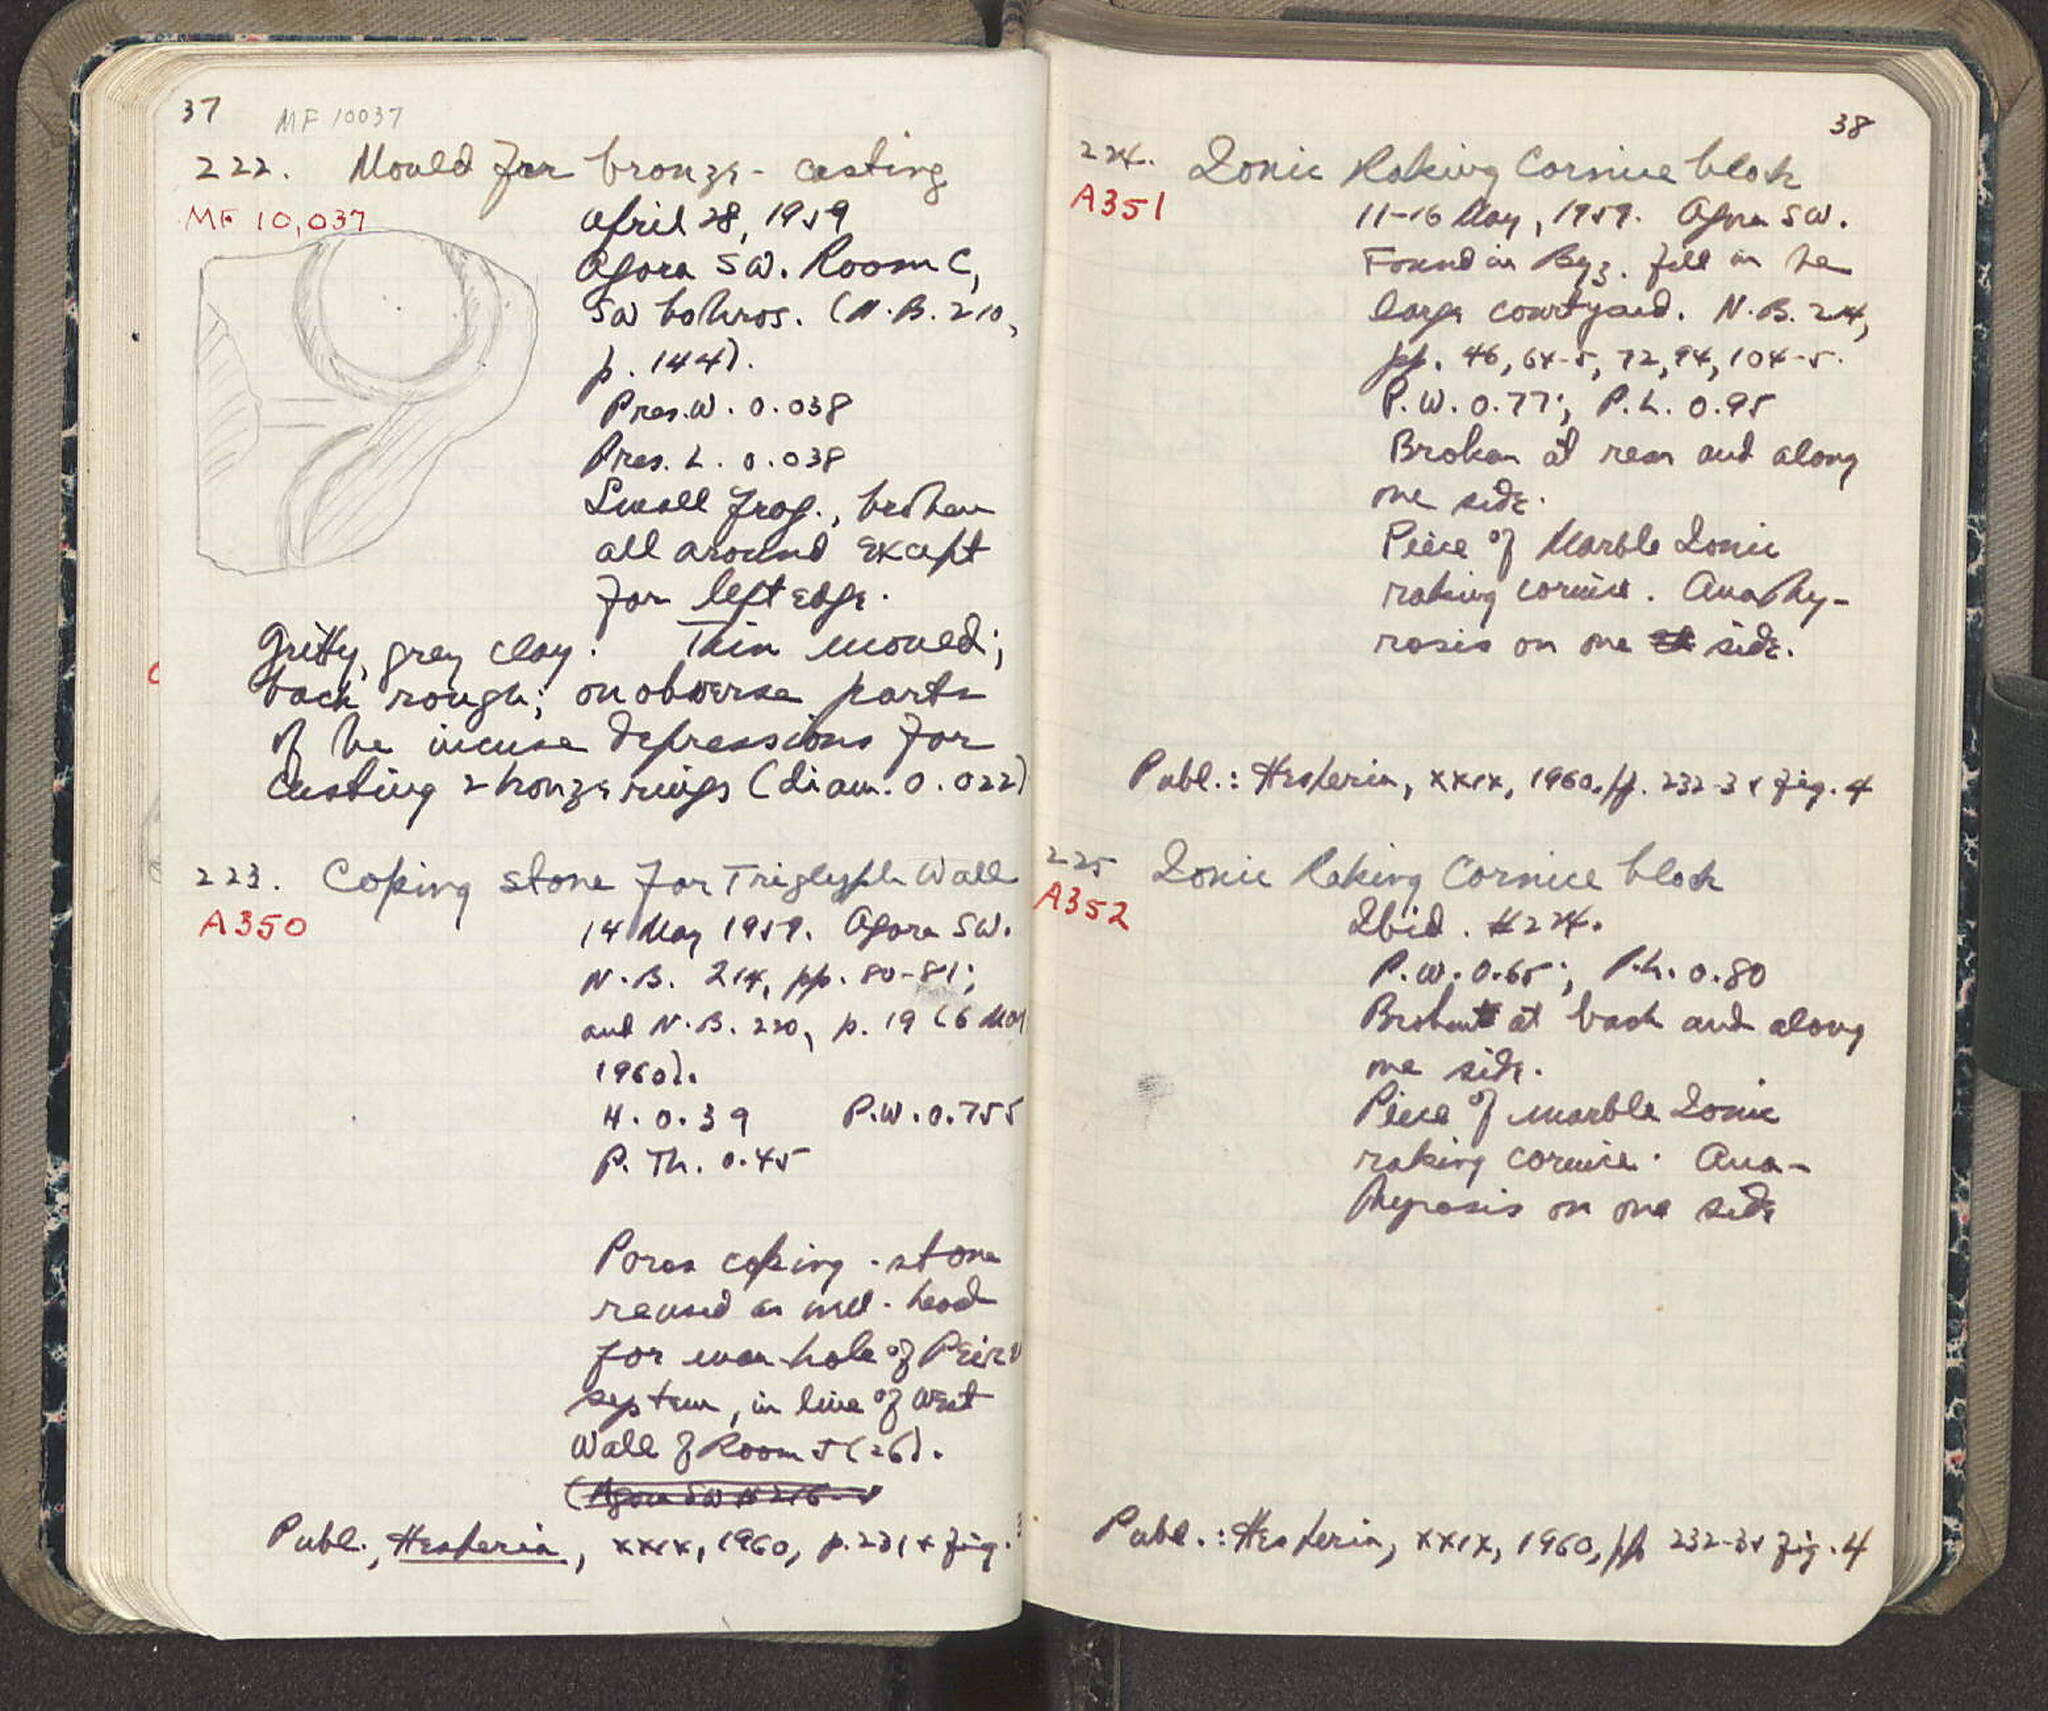 37
MF 10037
222. Mould for bronze-casting
MF 10,037
April 28, 1959
Agora SW. Room C,
SW bothros. (N.B. 210,
p. 144).
Pres. W. 0.038
Pres. L. 0.038
Small frag., broken
all around except
for left edge.
Gritty, grey clay. Thin mould;
back rough; on obverse parts
of the incuse depressions for
casting 2 bronze rings (diam. 0.022)
223. Coping stone for Triglyph Wall
A350
14 May 1959. Agora SW.
N.B. 214, pp. 80-81;
and N.B. 220, p. 19 (6 May
1960).
H. 0.39 P.W. 0.755
P. Th. 0.45
Poros coping-stone
reused as well-head
for manhole of Peirene
system, in line of West
Wall of Room J (26).
(Agora SW #216
Publ., Hesperia, XXIX, 1960, p. 231 & fig. 3
38
224. Ionic Raking Cornice block
A351
11-16 May, 1959. Agora SW.
Found in Byz. fill in the
large courtyard. N.B. 214,
pp. 46, 64-5, 72, 94, 104-5.
P.W. 0.77; P.L. 0.95
Broken at rear and along
one side.
Piece of Marble Ionic
raking cornice. Anathy-
rosis on one side.
Publ.: Hesperia, XXIX, 1960, pp. 232-3 & fig. 4
225 Ionic Raking Cornice block
A352
Ibid. #224.
P.W. 0.65; P.L. 0.80
Broken at back and along
one side.
Piece of marble Ionic
raking cornice. Ana-
thyrosis on one side
Publ.: Hesperia, XXIX, 1960, pp 232-3 & fig. 4